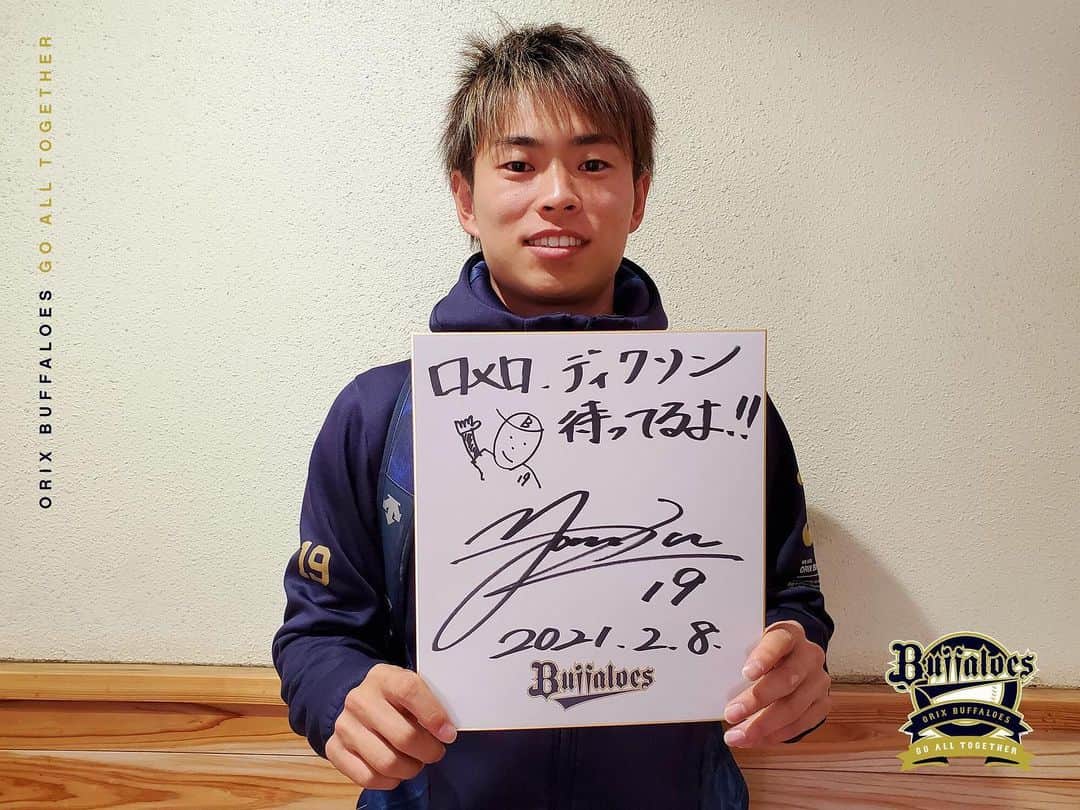 ORIX BUFFALOES GO ALL TOGETHER
ロメロ．ディクソン
待ってるよ!!
B
19
19
2021.2.8.
Buffaloes
19
Buffaloes
ORIX BUFFALOES
GO ALL TOGETHER